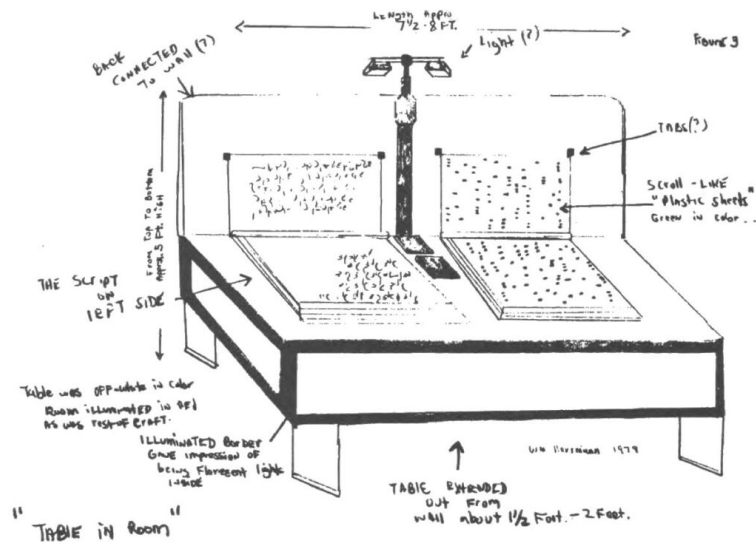 Length Appro
7 1/2 - 8 FT.
Light (?)
Figure 3
BACK
CONNECTED
TO WALL (?)
TABS (?)
SCROLL - LIKE
"Plastic sheets"
Green in color..
From Top To Bottom
Appro. 5 Ft. High
THE SCRIPT
ON
LEFT SIDE
Table was off-white in color
Room illuminated in red
As was rest of craft.
ILLUMINATED Border
Gave impression of
being Floresent lights
INSIDE
1979
TABLE EXTENDED
OUT From
wall about 1 1/2 Foot. - 2 Feet.
"TABLE IN ROOM"